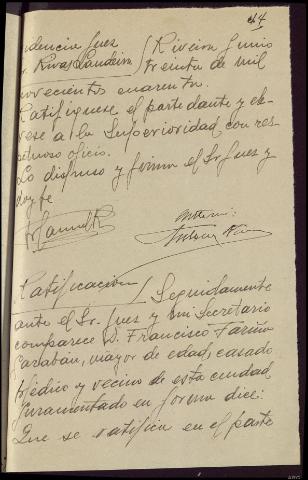 14
idencia Juez
Rivas Landeira / Riveira Junio
treinta de mil
novecientos cuarenta.
Ratifiquese el parte dante y ele-
vese a la Superioridad con res-
petuoso oficio.
Lo dispuso y firma el Sr Juez y
doy fe
Ante mi:
Ratificación / Seguidamente
ante el Sr. Juez y mi Secretario
comparece D. Francisco Fariña
Garabán, mayor de edad, casado
Médico y vecino de esta ciudad
Juramentado en forma dice:
Que se ratifica en el parte